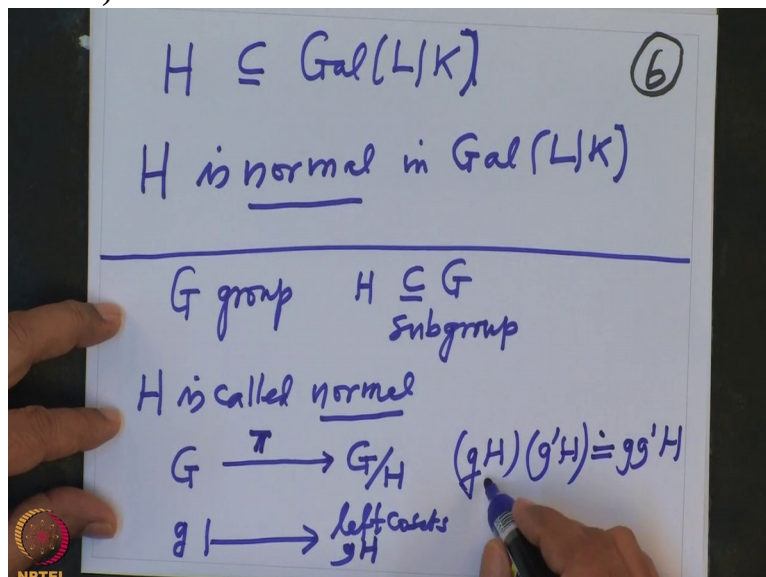 H ⊆ Gal(L|K)
6
H is normal in Gal(L|K)
G group H ⊆ G
subgroup
H is called normal
G —π→ G/H (gH)(g'H) ≐ gg'H
g ↦ left cosets
gH
NPTEL